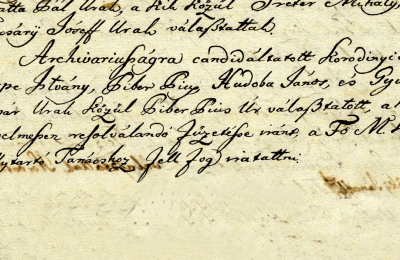 atta Pál Urak, a kik közül Preter Mihály,
osárij Jósef Urak választattak.
Archivariusságra candidáltatott Korodinyi
pe István, Piber Pius, Hudoba János, és Gyu
par Urak közül Piber Pius Ur választatott, a
elmesen resolválandó fizetése iránt, a Fő M.
lytartó Tanácshoz fell fog iratattni.